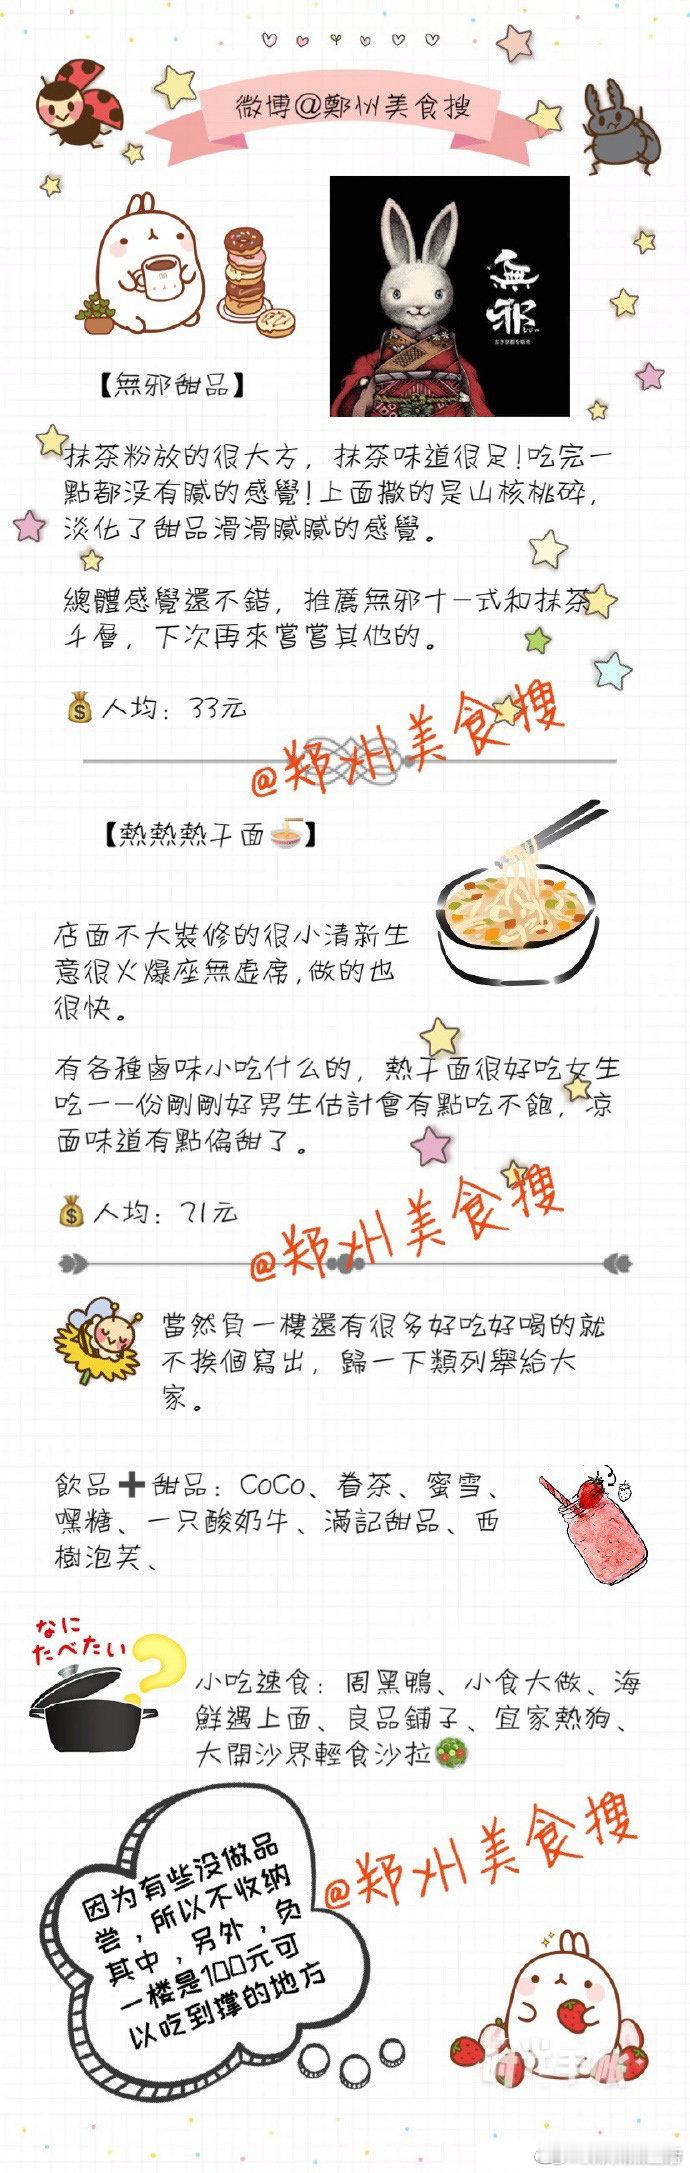 微博@鄭州美食搜
無邪
【無邪甜品】
抹茶粉放的很大方，抹茶味道很足!吃完一
點都没有膩的感覺!上面撒的是山核桃碎,
淡化了甜品滑滑膩膩的感覺。
總體感覺還不錯，推薦無邪十一式和抹茶
千層，下次再來嘗嘗其他的。
人均：33元
@郑州美食搜
【熱熱熱干面】
店面不大裝修的很小清新生
意很火爆座無虚席,做的也
很快。
有各種鹵味小吃什么的，熱干面很好吃女生
吃一一份剛剛好男生估計會有點吃不飽，凉
面味道有點偏甜了。
人均：21元
@郑州美食搜
當然負一樓還有很多好吃好喝的就
不挨個寫出，歸一下類列舉給大
家。
飲品➕甜品：CoCo、眷茶、蜜雪、
嘿糖、一只酸奶牛、滿記甜品、西
樹泡芙、
なに
たべたい
小吃速食：周黑鴨、小食大做、海
鮮遇上面、良品鋪子、宜家熱狗、
大開沙界輕食沙拉
@郑州美食搜
因为有些没做品
尝，所以不收纳
其中，另外，负
一楼是100元可
以吃到撑的地方